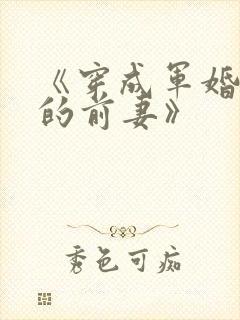 《穿成军婚
的前妻》
秀色可痴